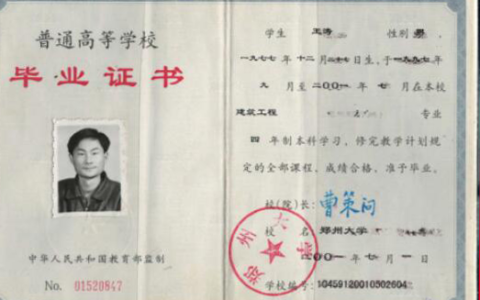 普通高等学校
毕业证书
中华人民共和国教育部监制
No. 01520847
学生 王涛 性别
一九七七年十二月二十七日生,于一九九七年
九月至二〇〇一年七月在本校
建筑工程 专业
四年制本科学习,修完教学计划规
定的全部课程,成绩合格,准予毕业。
校(院)长:曹策问
校 名 郑州大学
二〇〇一年七月一日
学校编号:10459120010502604
郑州大学